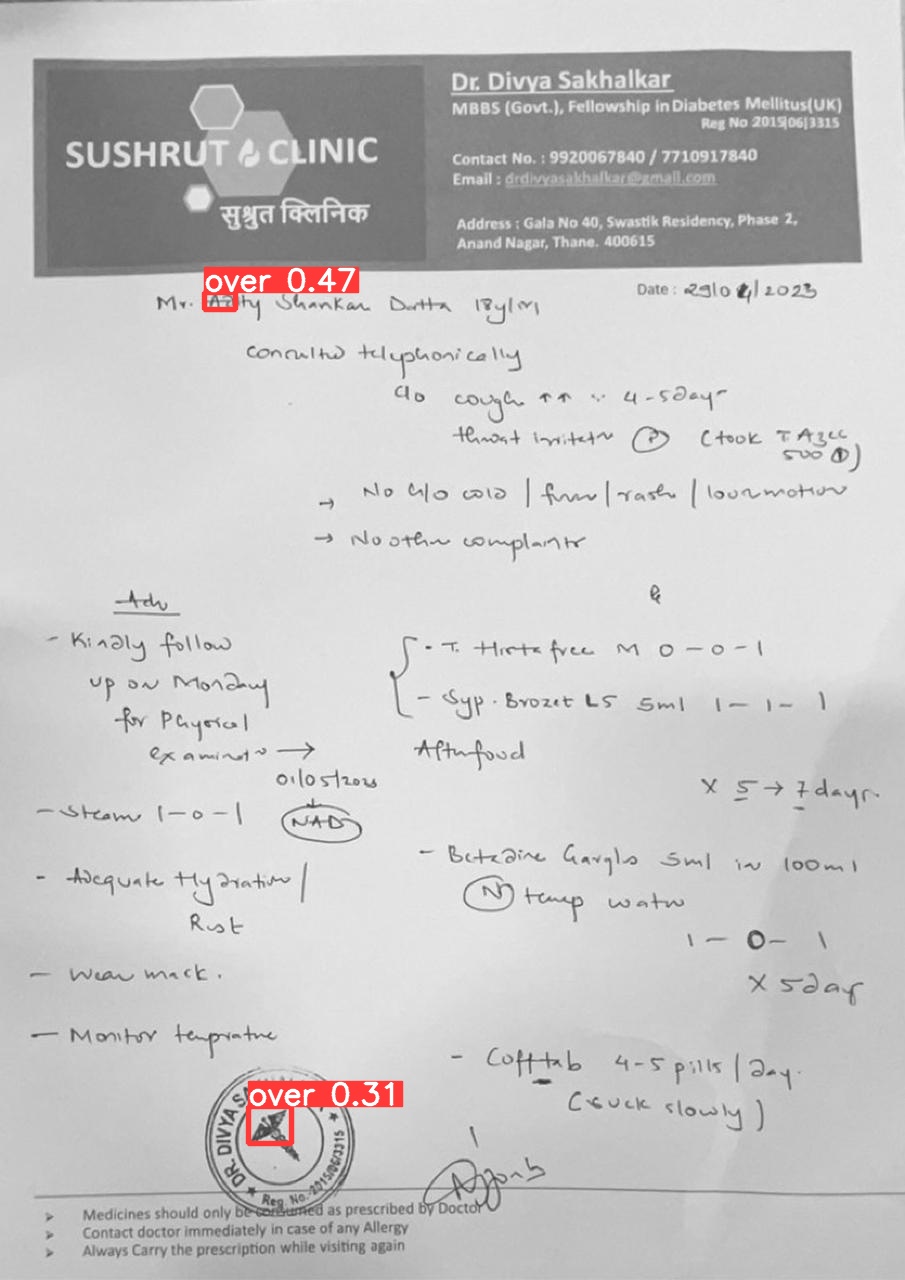 SUSHRUT CLINIC
सुश्रुत क्लिनिक
Dr. Divya Sakhalkar
MBBS (Govt.), Fellowship in Diabetes Mellitus(UK)
Reg No 2015|06|3315
Contact No. : 9920067840 / 7710917840
Email : drdivyasakhalkar@gmail.com
Address : Gala No 40, Swastik Residency, Phase 2,
Anand Nagar, Thane. 400615
over 0.47
Date : 29/04/2023
Mr. Shankar Dutta 18y/M
Consulted telephonically
c/o cough ↑↑ 4-5 days
throat irritatn (took T Azee
500 ①)
→ No c/o cold / fever / rash / loosemotion
→ No other complaints
Adv
- Kindly follow
up on Monday
for Physical
examinatn →
01/05/2023
NAD
- Steam 1-0-1
- Adequate Hydration /
Rest
- Wear mask.
- Monitor temprature
- T. Histafree M 0-0-1
- Syp. Brozet LS 5ml 1-1-1
After food
x 5 → 7 days.
- Betadine Gargles 5ml in 100ml
(N) temp water
1-0-1
x 5 day
- Cofftab 4-5 pills / day.
(suck slowly)
over 0.31
DR. DIVYA
Reg. No.-2015/06/3315
➤ Medicines should only be consumed as prescribed by Doctor
➤ Contact doctor immediately in case of any Allergy
➤ Always Carry the prescription while visiting again